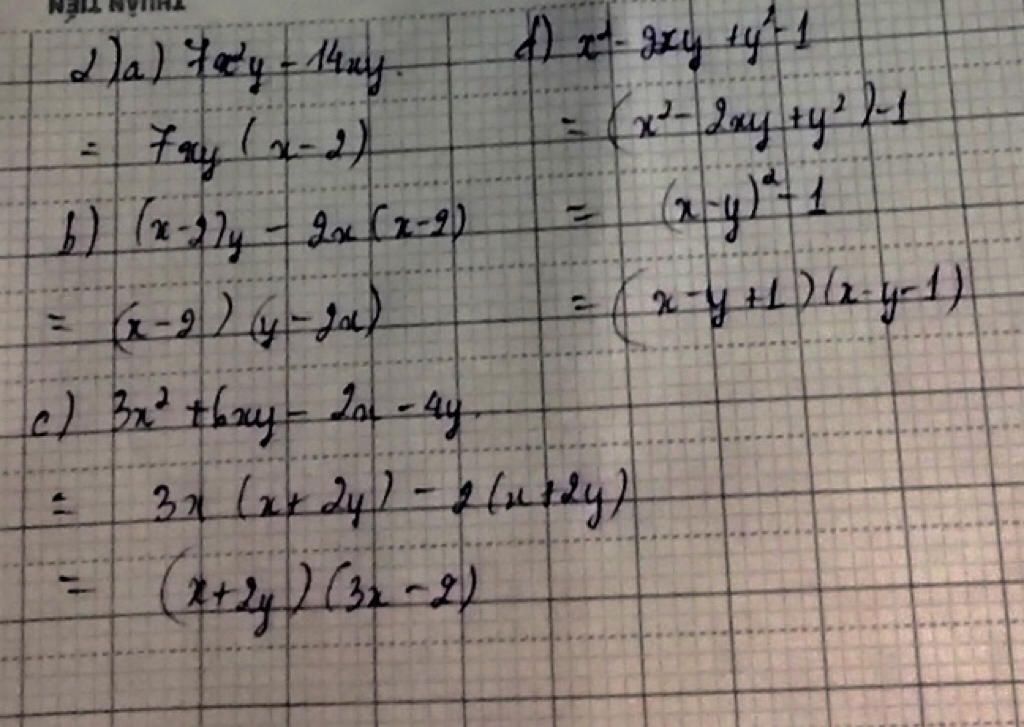 THUẬN TIẾN
2) a) 7x²y - 14xy
= 7xy (x - 2)
b) (x-2)y - 2x (x-2)
= (x-2) (y - 2x)
c) 3x² + 6xy - 2x - 4y
= 3x (x + 2y) - 2 (x + 2y)
= (x+2y) (3x - 2)
d) x² - 2xy + y² - 1
= (x² - 2xy + y²) - 1
= (x - y)² - 1
= (x - y + 1) (x - y - 1)